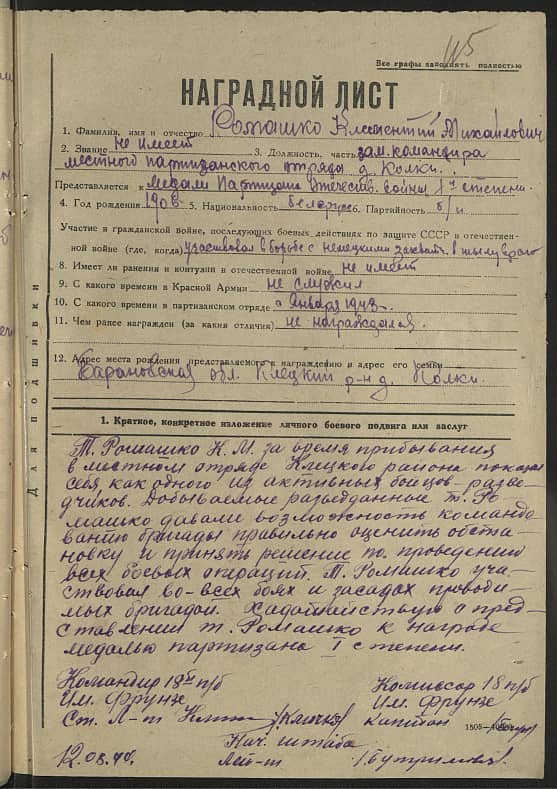 115
Все графы заполнять полностью
НАГРАДНОЙ ЛИСТ
1. Фамилия, имя и отчество Ромашко Клементий Михайлович
2. Звание не имеет 3. Должность, часть зам. командира
местного партизанского отряда д. Колки.
Представляется к медали Партизану Отечеств. войны 1й степени.
4. Год рождения 1908 5. Национальность белорус 6. Партийность б/п
Участие в гражданской войне, последующих боевых действиях по защите СССР и отечествен-
ной войне (где, когда) участвовал в борьбе с немецкими захват. в тылу врага
8. Имеет ли ранения и контузии в отечественной войне не имеет
9. С какого времени в Красной Армии не служил
10. С какого времени в партизанском отряде с Января 1943
11. Чем ранее награжден (за какия отличия) не награждался.
12. Адрес места рождения представляемого к награждению и адрес его семьи
Барановская обл. Клецкий р-н д. Колки.
Для подшивки
1. Краткое, конкретное изложение личного боевого подвига или заслуг
Т. Ромашко К. М. за время прибывания
в местном отряде Клецкого района показал
себя как одного из активных бойцов-развед-
чиков. Добываемые разведданные т. Ро-
машко давали возможность командо-
ванию бригады правильно оценить обста-
новку и принять решение по проведению
всех боевых операций. Т. Ромашко уча-
ствовал во-всех боях и засадах проводи-
мых бригадой. Хадатайствую о пред-
ставлении т. Ромашко к награде
медалью партизана I степени.
Командир 18й п/б Комиссар 18 п/б
Им. Фрунзе Им. Фрунзе
Ст. Л-т /Кличко/ Капитан
Нач. штаба
12.08.44. Лей-т